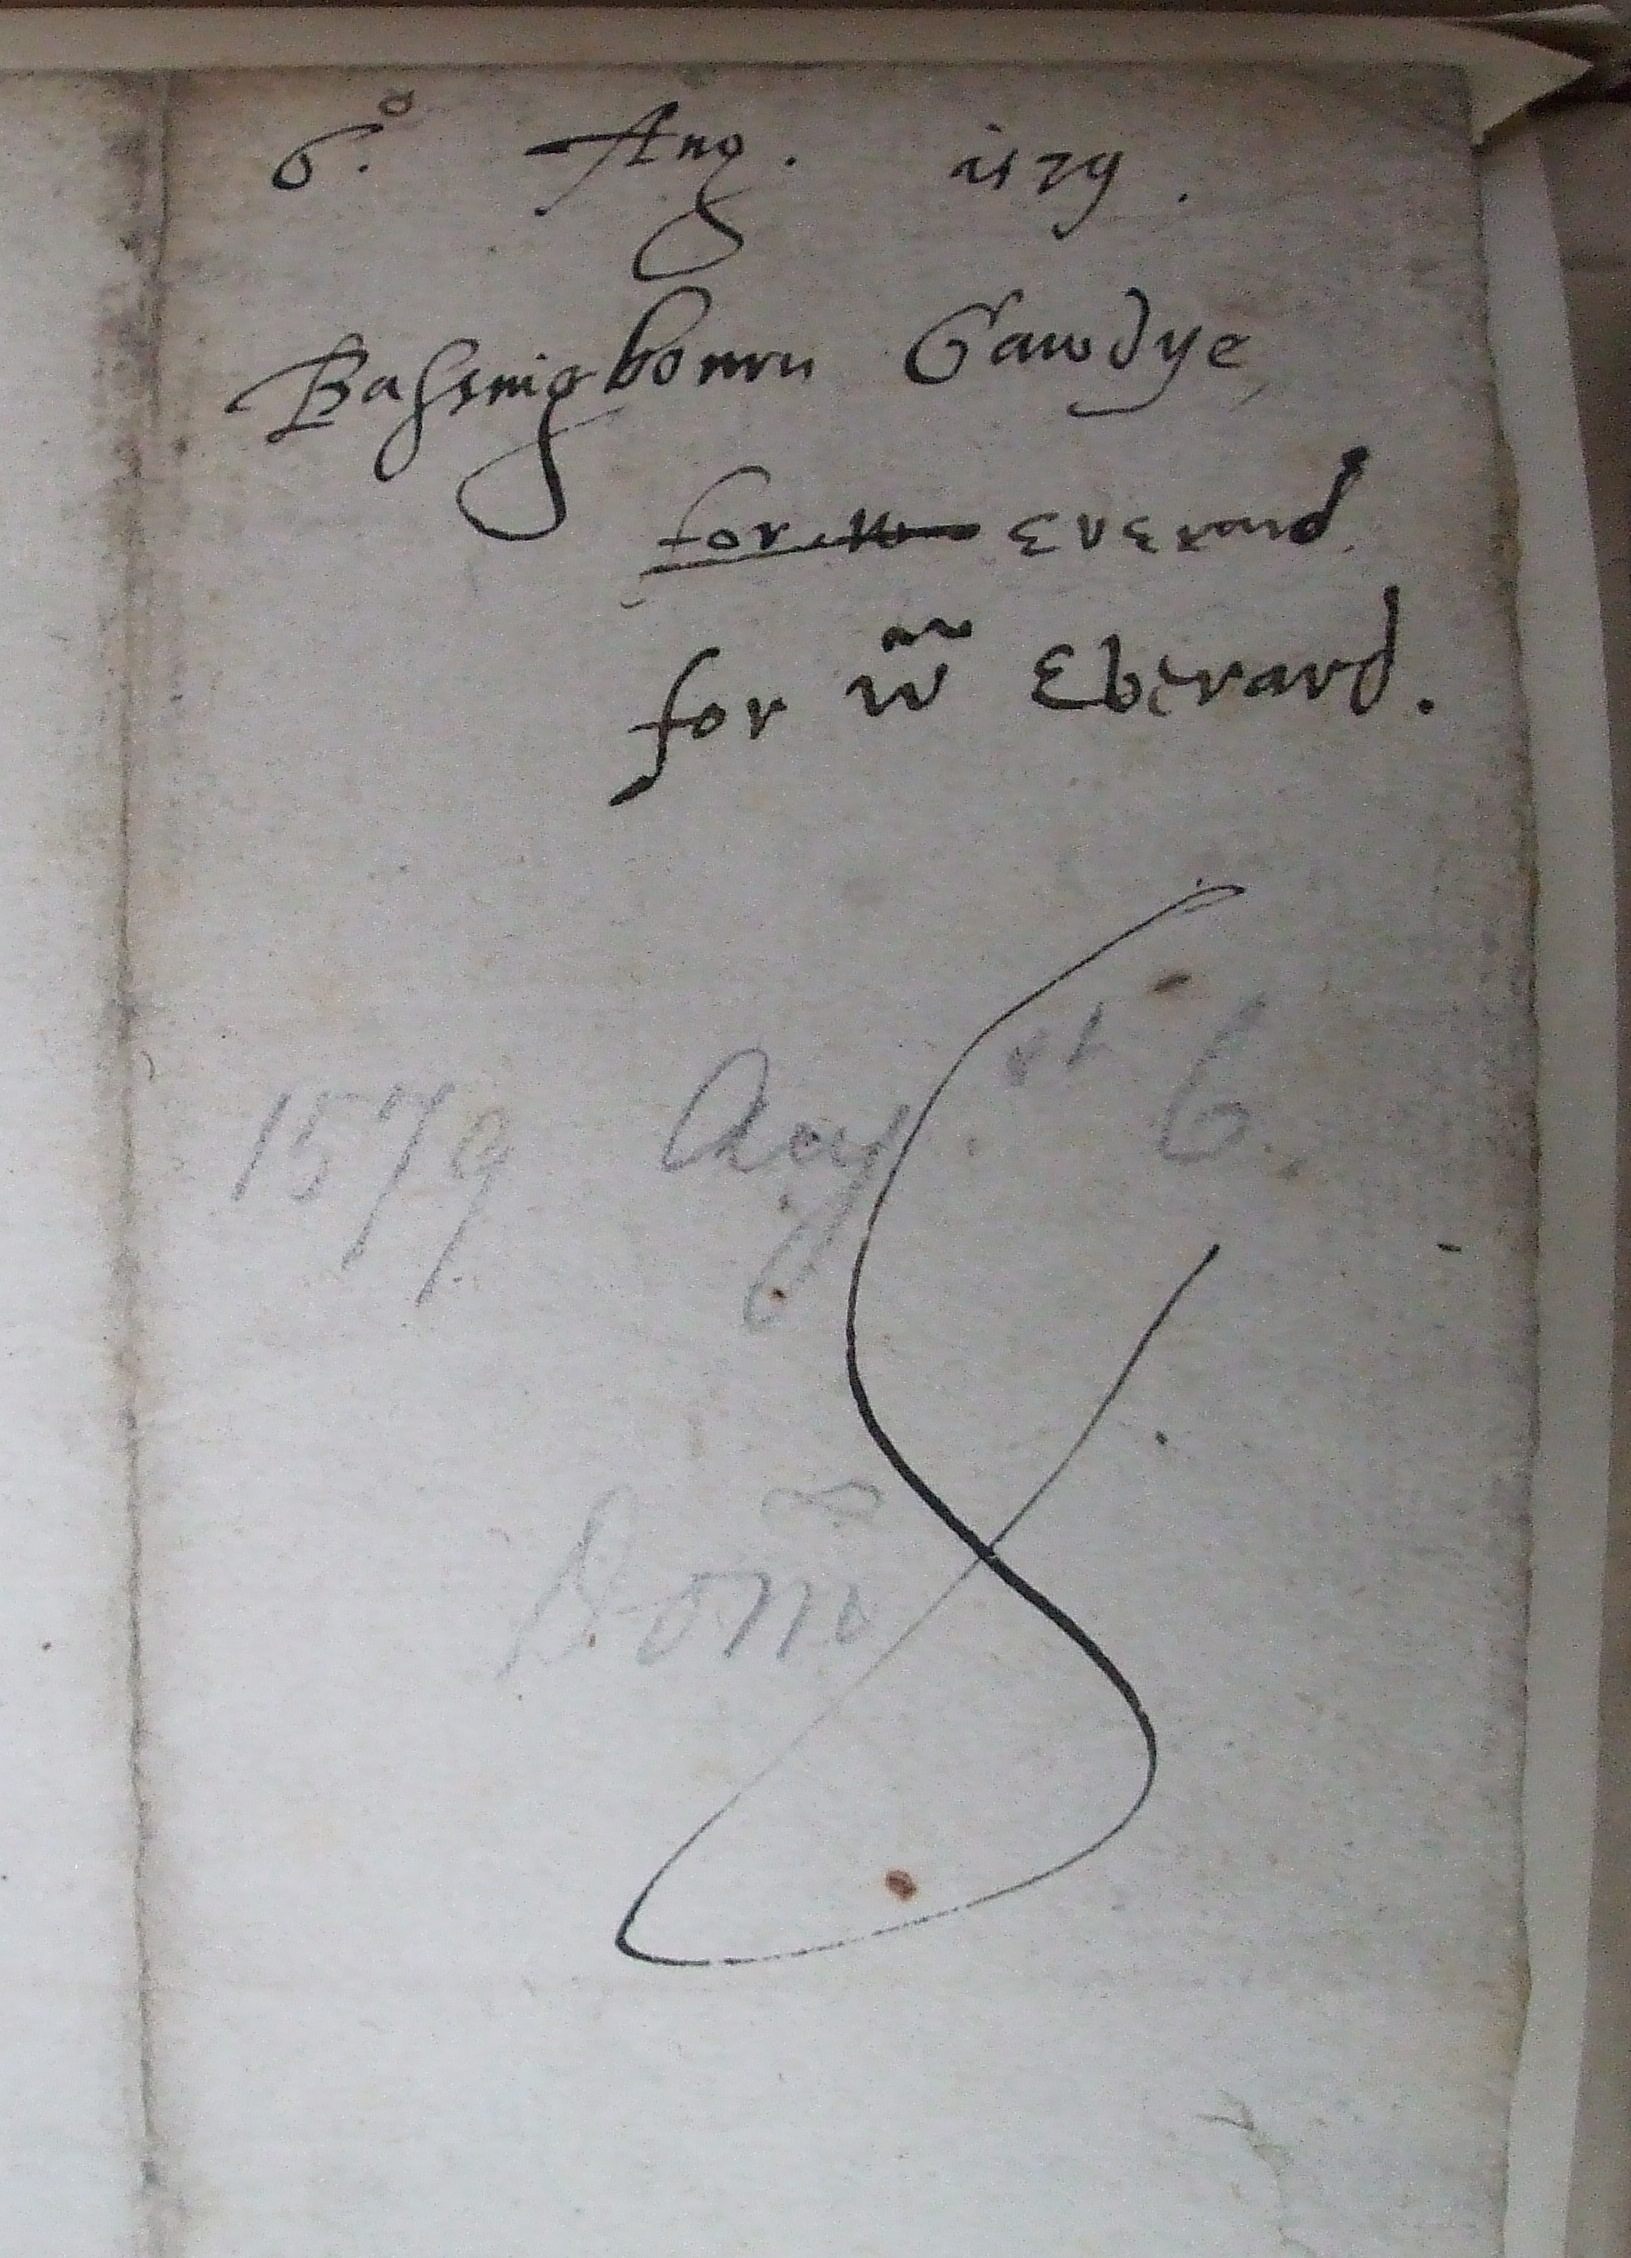 6.º Aug. 1579.
Bassingbourn Gawdye
for w Everard
for w̃ Everard.
1579 Aug. st 6.
Dom̃